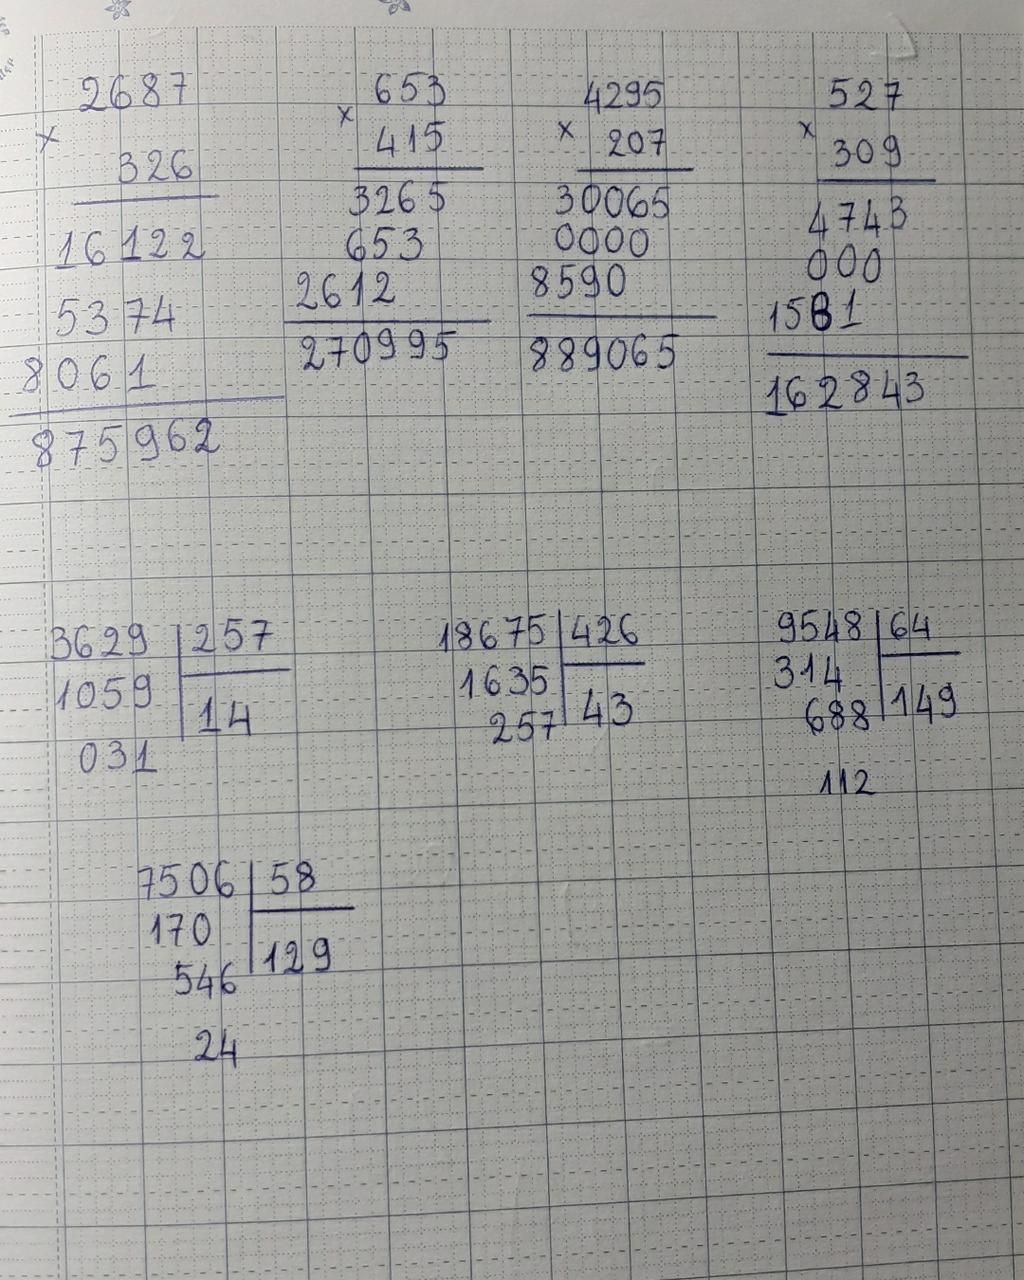 2687
×
326
16122
5374
8061
875962
653
×
415
3265
653
2612
270995
4295
×
207
30065
0000
8590
889065
527
×
309
4743
000
1581
162843
3629 257
1059 14
031
18675 426
1635 43
257
9548 64
314 149
688
112
7506 58
170 129
546
24